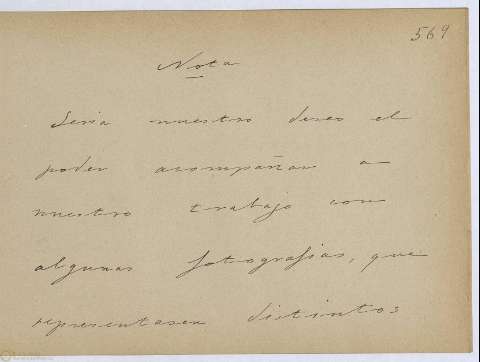 569
Nota
Seria nuestro deseo el
poder acompañar a
nuestro trabajo con
algunas fotografias, que
representasen distintos